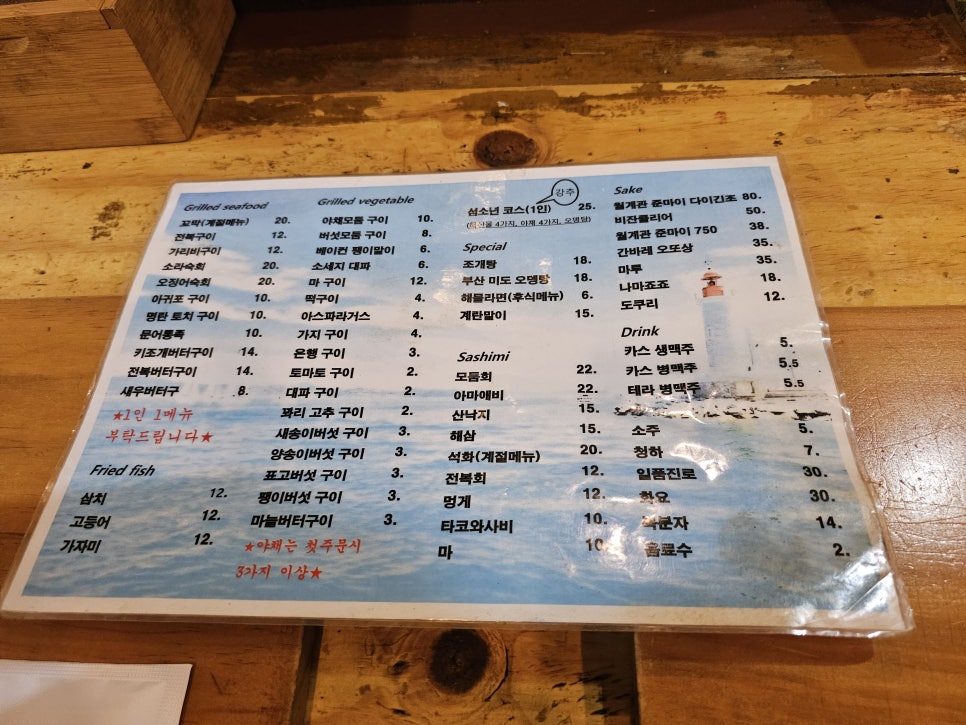 Grilled seafood
꼬막(계절메뉴) 20.
전복구이 12.
가리비구이 12.
소라숙회 20.
오징어숙회 20.
아귀포 구이 10.
명란 토치 구이 10.
문어통족 10.
키조개버터구이 14.
전복버터구이 14.
새우버터구 8.
★1인 1메뉴
부탁드립니다★
Fried fish
삼치 12.
고등어 12.
가자미 12.
Grilled vegetable
야채모둠 구이 10.
버섯모듬 구이 8.
베이컨 팽이말이 6.
소세지 대파 6.
마 구이 12.
떡구이 4.
아스파라거스 4.
가지 구이 4.
은행 구이 3.
토마토 구이 2.
대파 구이 2.
꽈리 고추 구이 2.
새송이버섯 구이 3.
양송이버섯 구이 3.
표고버섯 구이 3.
팽이버섯 구이 3.
마늘버터구이 3.
★야채는 첫주문시
3가지 이상★
강추
섬소년 코스(1인) 25.
(해산물 4가지, 야채 4가지, 오뎅탕)
Special
조개탕 18.
부산 미도 오뎅탕 18.
해뜰라면(후식메뉴) 6.
계란말이 15.
Sashimi
모둠회 22.
아마에비 22.
산낙지 15.
해삼 15.
석화(계절메뉴) 20.
전복회 12.
멍게 12.
타코와사비 10.
마 10.
Sake
월계관 준마이 다이긴조 80.
비잔클리어 50.
월계관 준마이 750 38.
간바레 오또상 35.
마루 35.
나마죠죠 18.
도쿠리 12.
Drink
카스 생맥주 5.
카스 병맥주 5.5
테라 병맥주 5.5
소주 5.
청하 7.
일품진로 30.
화요 30.
14.
음료수 2.